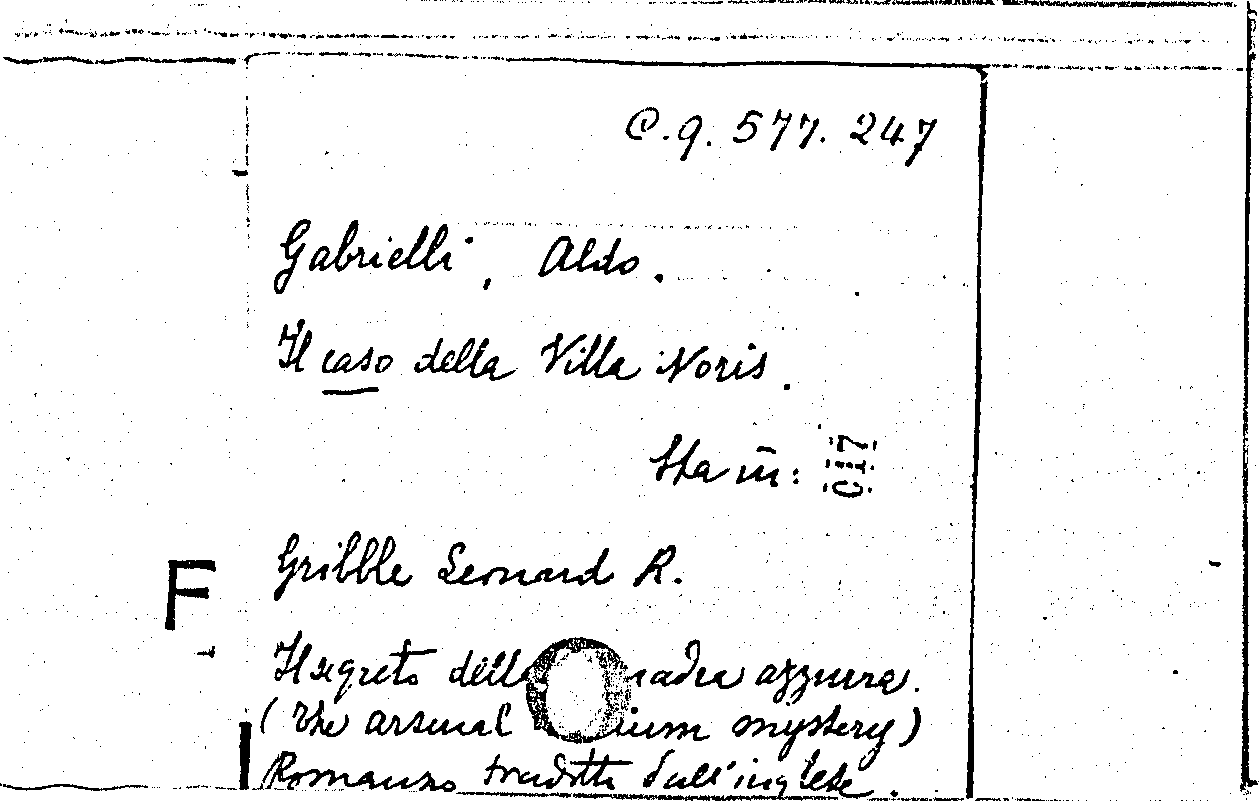 C.9. 577. 247
Gabrielli, Aldo.
Il caso della Villa Noris.
Sta in:
C117
Gribble Leonard R.
F
Il segreto azzurra.
(The arsenal mystery)
Romanzo tradotto dall'inglese.